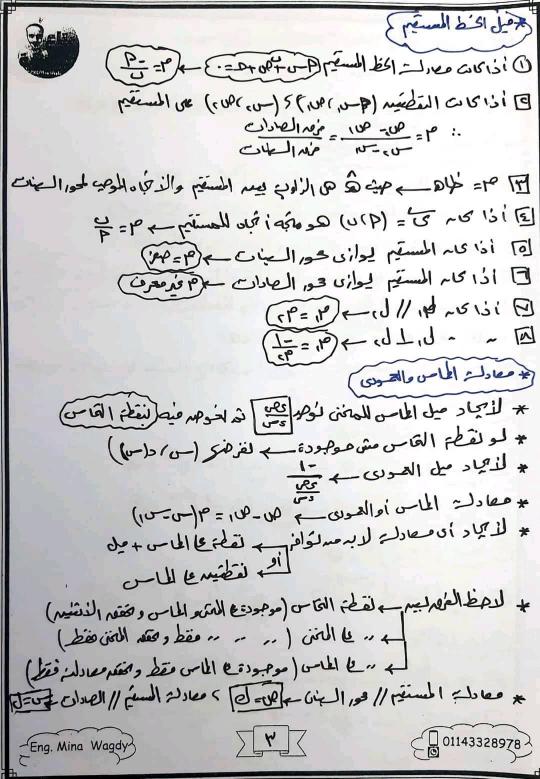 * ميل الخط المستقيم
① إذا كانت معادلة الخط المستقيم P س + ب ص + حـ = ٠ ← م = -P / ب
٢ إذا كانت النقطتين (س١، ص١) ، (س٢، ص٢) على المستقيم
∴ م = ص٢ - ص١ / س٢ - س١ = فرق الصادات / فرق السينات
٣ م = ظا هـ ← حيث هـ هى الزاوية بين المستقيم والاتجاه الموجب لمحور السينات
٤ إذا كان ى = (P، ب) هو متجه اتجاه للمستقيم ← م = ب / P
٥ إذا كان المستقيم يوازى محور السينات ← م = صفر
٦ إذا كان المستقيم يوازى محور الصادات ← م غير معرف
٧ إذا كان ل١ // ل٢ ← م١ = م٢
٨ " " ل١ ⊥ ل٢ ← م١ = -١ / م٢
* معادلة المماس والعمودى
* لإيجاد ميل المماس للمنحنى نوجد ءص / ءس ثم نعوض فيه بنقطة التماس
* لو نقطة التماس مش موجودة ← نفرضها (س، د(س))
* لإيجاد ميل العمودى ← -١ / ءص / ءس
* معادلة المماس أو العمودى ← ص - ص١ = م (س - س١)
* لإيجاد أى معادلة لابد من توافر ← نقطة ع المماس + ميل
أو ← نقطتين ع المماس
* لاحظ الفرق بين ← نقطة التماس (موجودة ع المنحنى والمماس وتحقق الاثنين)
← " ع المنحنى ( " " " فقط وتحقق المنحنى فقط)
← " ع المماس (موجودة ع المماس فقط وتحقق معادلته فقط)
* معادلة المستقيم // محور السينات ← ص = ك ، معادلة المستقيم // الصادات ← س = ل
Eng. Mina Wagdy
٣
01143328978